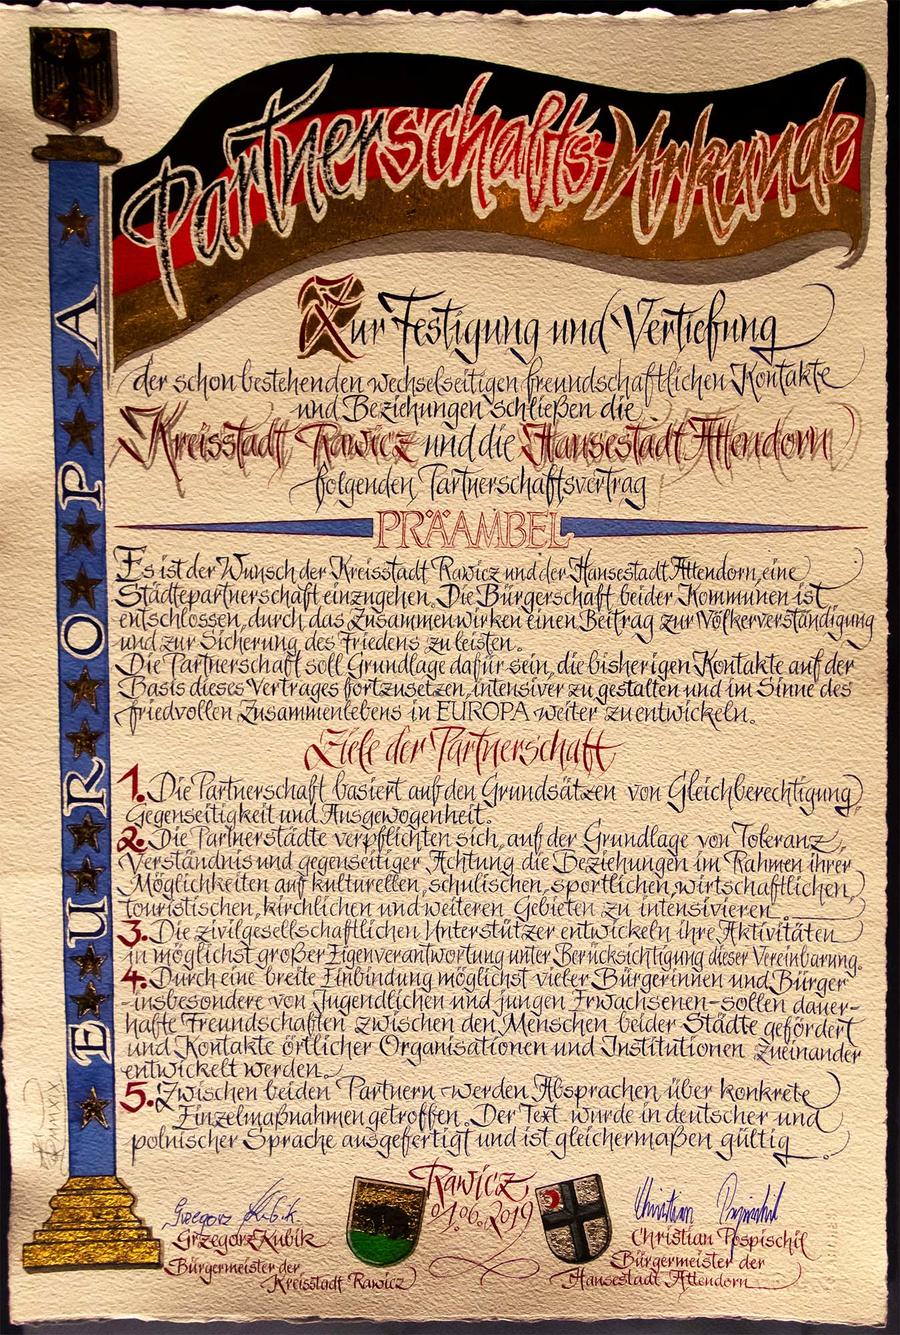 Partnerschafts-Urkunde
Zur Festigung und Vertiefung
der schon bestehenden wechselseitigen freundschaftlichen Kontakte
und Beziehungen schließen die
Kreisstadt Rawicz und die Hansestadt Attendorn
folgenden Partnerschaftsvertrag
PRÄAMBEL
Es ist der Wunsch der Kreisstadt Rawicz und der Hansestadt Attendorn, eine
Städtepartnerschaft einzugehen. Die Bürgerschaft beider Kommunen ist
entschlossen, durch das Zusammenwirken einen Beitrag zur Völkerverständigung
und zur Sicherung des Friedens zu leisten.
Die Partnerschaft soll Grundlage dafür sein, die bisherigen Kontakte auf der
Basis dieses Vertrages fortzusetzen, intensiver zu gestalten und im Sinne des
friedvollen Zusammenlebens in EUROPA weiter zu entwickeln.
Ziele der Partnerschaft
1. Die Partnerschaft basiert auf den Grundsätzen von Gleichberechtigung,
Gegenseitigkeit und Ausgewogenheit.
2. Die Partnerstädte verpflichten sich, auf der Grundlage von Toleranz,
Verständnis und gegenseitiger Achtung die Beziehungen im Rahmen ihrer
Möglichkeiten auf kulturellen, schulischen, sportlichen, wirtschaftlichen,
touristischen, kirchlichen und weiteren Gebieten zu intensivieren.
3. Die zivilgesellschaftlichen Unterstützer entwickeln ihre Aktivitäten
in möglichst großer Eigenverantwortung unter Berücksichtigung dieser Vereinbarung.
4. Durch eine breite Einbindung möglichst vieler Bürgerinnen und Bürger
-insbesondere von Jugendlichen und jungen Erwachsenen- sollen dauer-
hafte Freundschaften zwischen den Menschen beider Städte gefördert
und Kontakte örtlicher Organisationen und Institutionen zueinander
entwickelt werden.
5. Zwischen beiden Partnern werden Absprachen über konkrete
Einzelmaßnahmen getroffen. Der Text wurde in deutscher und
polnischer Sprache ausgefertigt und ist gleichermaßen gültig
Rawicz
01.06.2019
Grzegorz Kubik
Grzegorz Kubik
Bürgermeister der
Kreisstadt Rawicz
Christian Pospischil
Christian Pospischil
Bürgermeister der
Hansestadt Attendorn
EUROPA